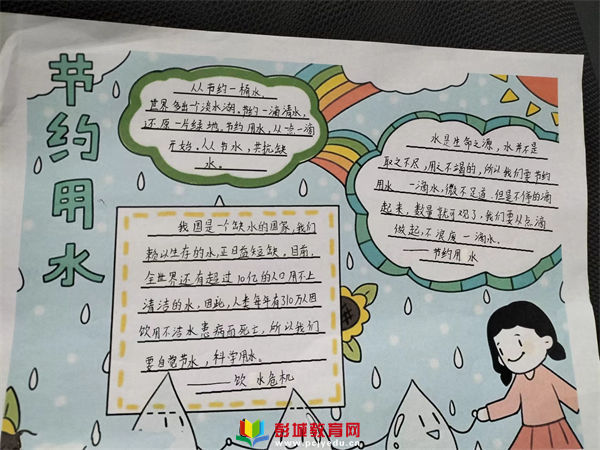 节约用水
从节约一桶水
世界多出个淡水湖。节约一滴清水,
还原一片绿地。节约用水,从点一滴
开始,人人节水,共抗缺
水。
水是生命之源,水并不是
取之不尽,用之不竭的,所以我们要节约
用水 一滴水,微不足道.但是不停的滴
起来,数量就可观了,我们要从点滴
做起,不浪废一滴水。
——节约用水
我国是一个缺水的国家,我们
赖以生存的水,正日益短缺,目前,
全世界还有超过10亿的人口用不上
清洁的水,因此,人类每年有310万人因
饮用不洁水患病而死亡,所以我们
要自觉节水,科学用水。
——饮水危机
彭城教育网
www.pcjyedu.cn